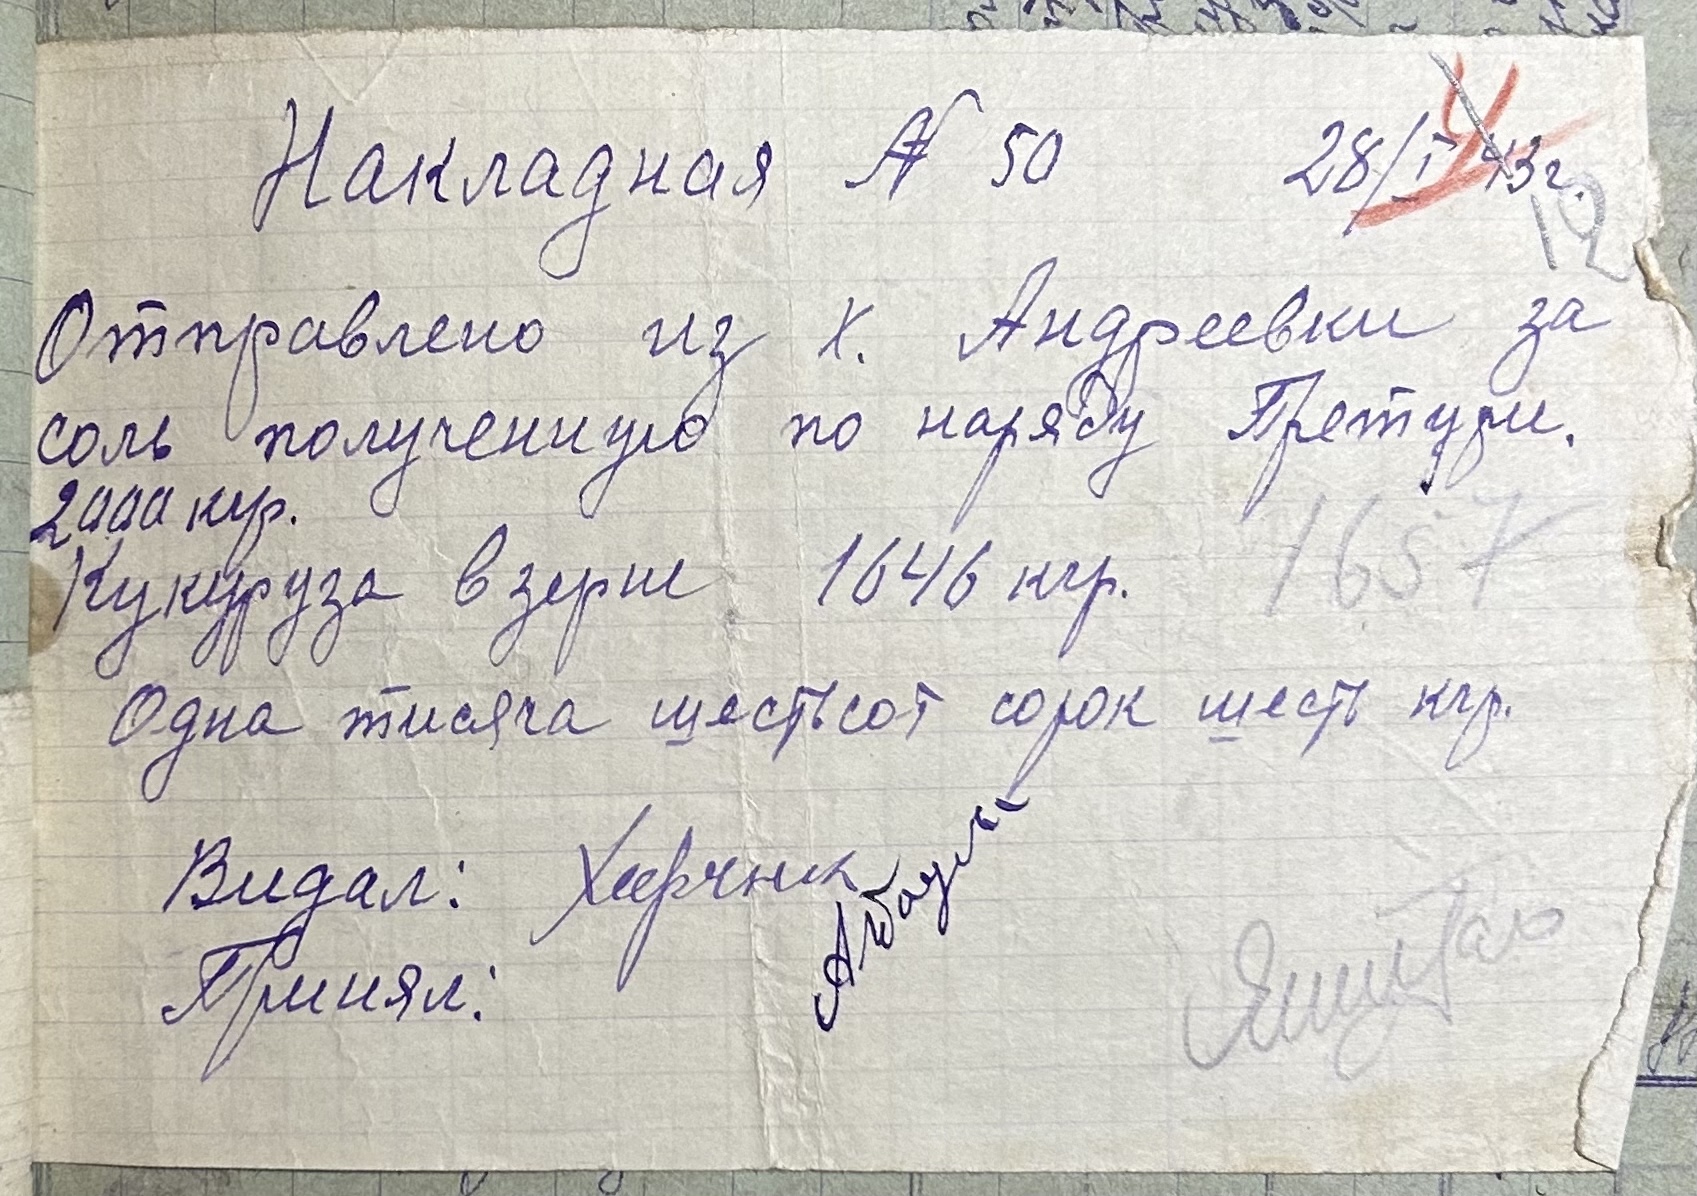 Накладная № 50 28/I 43 г.
4
12
Отправлено из х. Андреевки за
соль полученную по наряду Претури.
2000 кгр.
Кукуруза в зерне 1646 кгр. 1657
Одна тисяча шестьсот сорок шесть кгр.
Видал: Харчник
Принял: